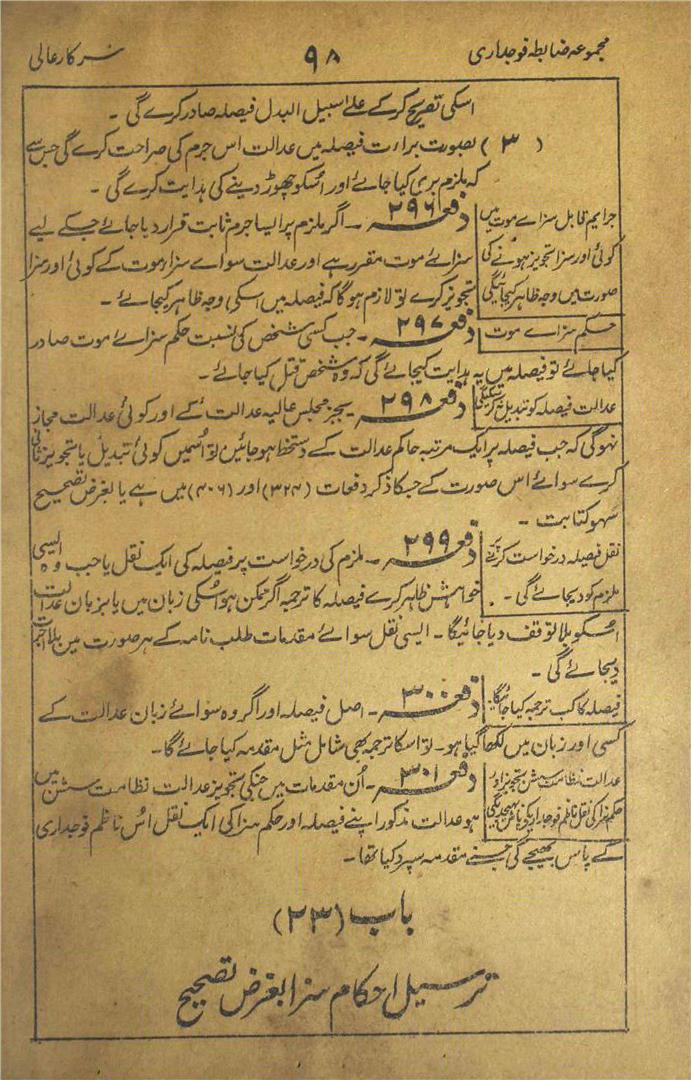 مجموعہ ضابطہ فوجداری
۹۸
سرکار عالی
اسکی تصریح کرکے علے سبیل البدل فیصلہ صادر کرے گی ۔
(۳) بصورت براءت فیصلہ میں عدالت اس جرم کی صراحت کرے گی جس سے
کہ ملزم بری کیا جائے اور اُسکو چھوڑ دینے کی ہدایت کرے گی ۔
جرایم قابل سزاے موت میں
کوئی اور سزا تجویز ہونے کی
صورت میں وجہ ظاہر کیجائیگی
دفعہ ۲۹۶ ۔ اگر ملزم پر ایسا جرم ثابت قرار دیا جائے جسکے لیے
سزائے موت مقرر ہے اور عدالت سواے سزاء موت کے کوئی اور سزا
تجویز کرے تو لازم ہوگا کہ فیصلہ میں اسکی وجہ ظاہر کیجائے ۔
حکم سزاے موت
دفعہ ۲۹۷ ۔ جب کسی شخص کی نسبت حکم سزائے موت صادر
کیا جائے تو فیصلہ میں یہ ہدایت کیجائے گی کہ وہ شخص قتل کیا جائے ۔
عدالت فیصلہ کو تبدیل نکرسکیگی
دفعہ ۲۹۸ ۔ بجز مجلس عالیہ عدالت کے اور کوئی عدالت مجاز
نہوگی کہ جب فیصلہ پر ایک مرتبہ حاکم عدالت کے دستخط ہوجائیں تو اُسمیں کوئی تبدیل یا تجویز ثانی
کرے سوائے اس صورت کے جسکا ذکر دفعات (۳۲۴) اور (۴۰۶) میں ہے یا بغرض تصحیح
سہو کتابت ۔
نقل فیصلہ درخواست کرنے پر
ملزم کو دیجائے گی ۔
دفعہ ۲۹۹ ۔ ملزم کی درخواست پر فیصلہ کی ایک نقل یا جب وہ ایسی
خواہش ظاہر کرے فیصلہ کا ترجمہ اگر ممکن ہو اُسکی زبان میں یا بزبان عدالت
اُسکو بلا توقف دیا جائیگا ۔ ایسی نقل سوائے مقدمات طلب نامہ کے ہر صورت میں بلا اجرت
دیجائے گی ۔
فیصلہ کا کب ترجمہ کیا جائیگا
دفعہ ۳۰۰ ۔ اصل فیصلہ اور اگر وہ سوائے زبان عدالت کے
کسی اور زبان میں لکھا گیا ہو ۔ تو اسکا ترجمہ بھی شامل مثل مقدمہ کیا جائے گا ۔
عدالت نظامت سشن تجویز اور
حکم سزا کی نقل ناظم فوجداری کے پاس بھیجدیگی
دفعہ ۳۰۱ ۔ اُن مقدمات میں جنکی تجویز عدالت نظامت سشن میں
ہو عدالت مذکور اپنے فیصلہ اور حکم سزا کی ایک نقل اُس ناظم فوجداری
کے پاس بھیجے گی جسنے مقدمہ سپرد کیا تھا ۔
باب (۲۳)
ترسیل احکام سزا بغرض تصحیح